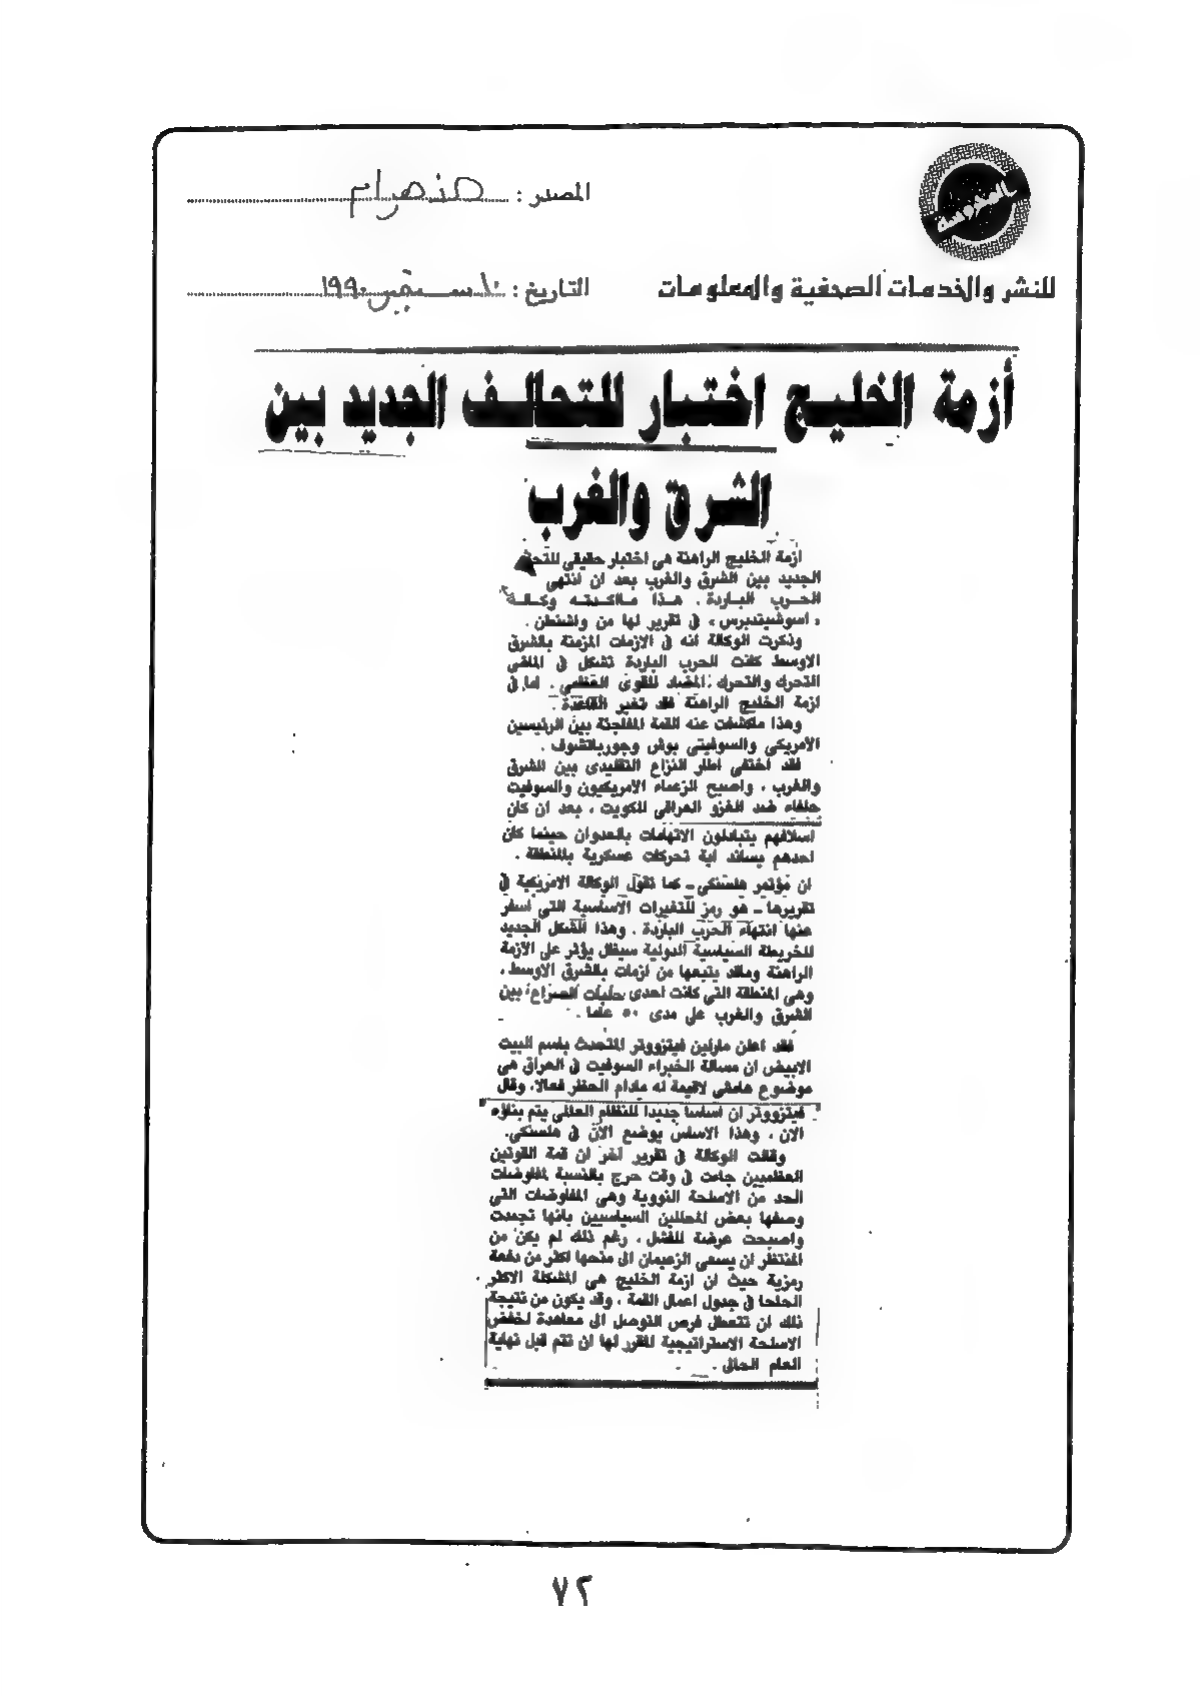 المحروسة
المصدر :
للنشر والخدمات الصحفية والمعلومات
التاريخ : ١٠ سبتمبر ١٩٩٠
أزمة الخليج اختبار للتحالف الجديد بين
الشرق والغرب
ازمة الخليج الراهنة هى اختبار حقيقى للتحالف
الجديد بين الشرق والغرب بعد ان انتهى
الحرب الباردة . هذا ماأكدته وكالة
« اسوشيتدبرس » فى تقرير لها من واشنطن .
وذكرت الوكالة انه فى الازمات المزمنة بالشرق
الاوسط كانت الحرب الباردة تشكل فى الماضى
التحرك والتحرك المضاد للقوى العظمى . اما فى
ازمة الخليج الراهنة فقد تغير القاعدة .
وهذا ماكشفت عنه القمة المفاجئة بين الرئيسين
الأمريكى والسوفيتى بوش وجورباتشوف .
فقد اختفى اطار النزاع التقليدى بين الشرق
والغرب ، واصبح الزعماء الامريكيون والسوفيت
حلفاء ضد الغزو العراقى للكويت ، بعد ان كان
اسلافهم يتبادلون الاتهامات بالعدوان حينما كان
احدهم يساند اية تحركات عسكرية بالمنطقة .
ان مؤتمر هلسنكى ـ كما تقول الوكالة الامريكية فى
تقريرها ـ هو رمز للتغيرات الاساسية التى أسفر
عنها انتهاء الحرب الباردة . وهذا الشكل الجديد
للخريطة السياسية الدولية سيظل يؤثر على الازمة
الراهنة وماقد يتبعها من ازمات بالشرق الاوسط ،
وهى المنطقة التى كانت احدى حلبات الصراع بين
الشرق والغرب على مدى ٥٠ عاما .
فقد اعلن مارلين فيتزووتر المتحدث باسم البيت
الابيض ان مسالة الخبراء السوفيت فى العراق هى
موضوع هامشى لاقيمة له مادام الحظر فعالا، وقال
فيتزووتر ان أساسا جديدا للنظام العالمى يتم بناؤه
الان ، وهذا الاساس يوضع الآن فى هلسنكى.
وقالت الوكالة فى تقرير آخر ان قمة القوتين
العظميين جاءت فى وقت حرج بالنسبة لمفاوضات
الحد من الاسلحة النووية وهى المفاوضات التى
وصفها بعض المحللين السياسيين بانها تجمدت
واصبحت عرضة للفشل ، رغم ذلك لم يكن من
المنتظر ان يسعى الزعيمان الى منحها اكثر من دفعة
رمزية حيث ان ازمة الخليج هى المشكلة الاكثر
الحاحا فى جدول اعمال القمة ، وقد يكون من نتيجة
ذلك ان تتعطل فرص التوصل الى معاهدة لخفض
الاسلحة الاستراتيجية المقرر لها ان تتم قبل نهاية
العام الحالى .
٧٢